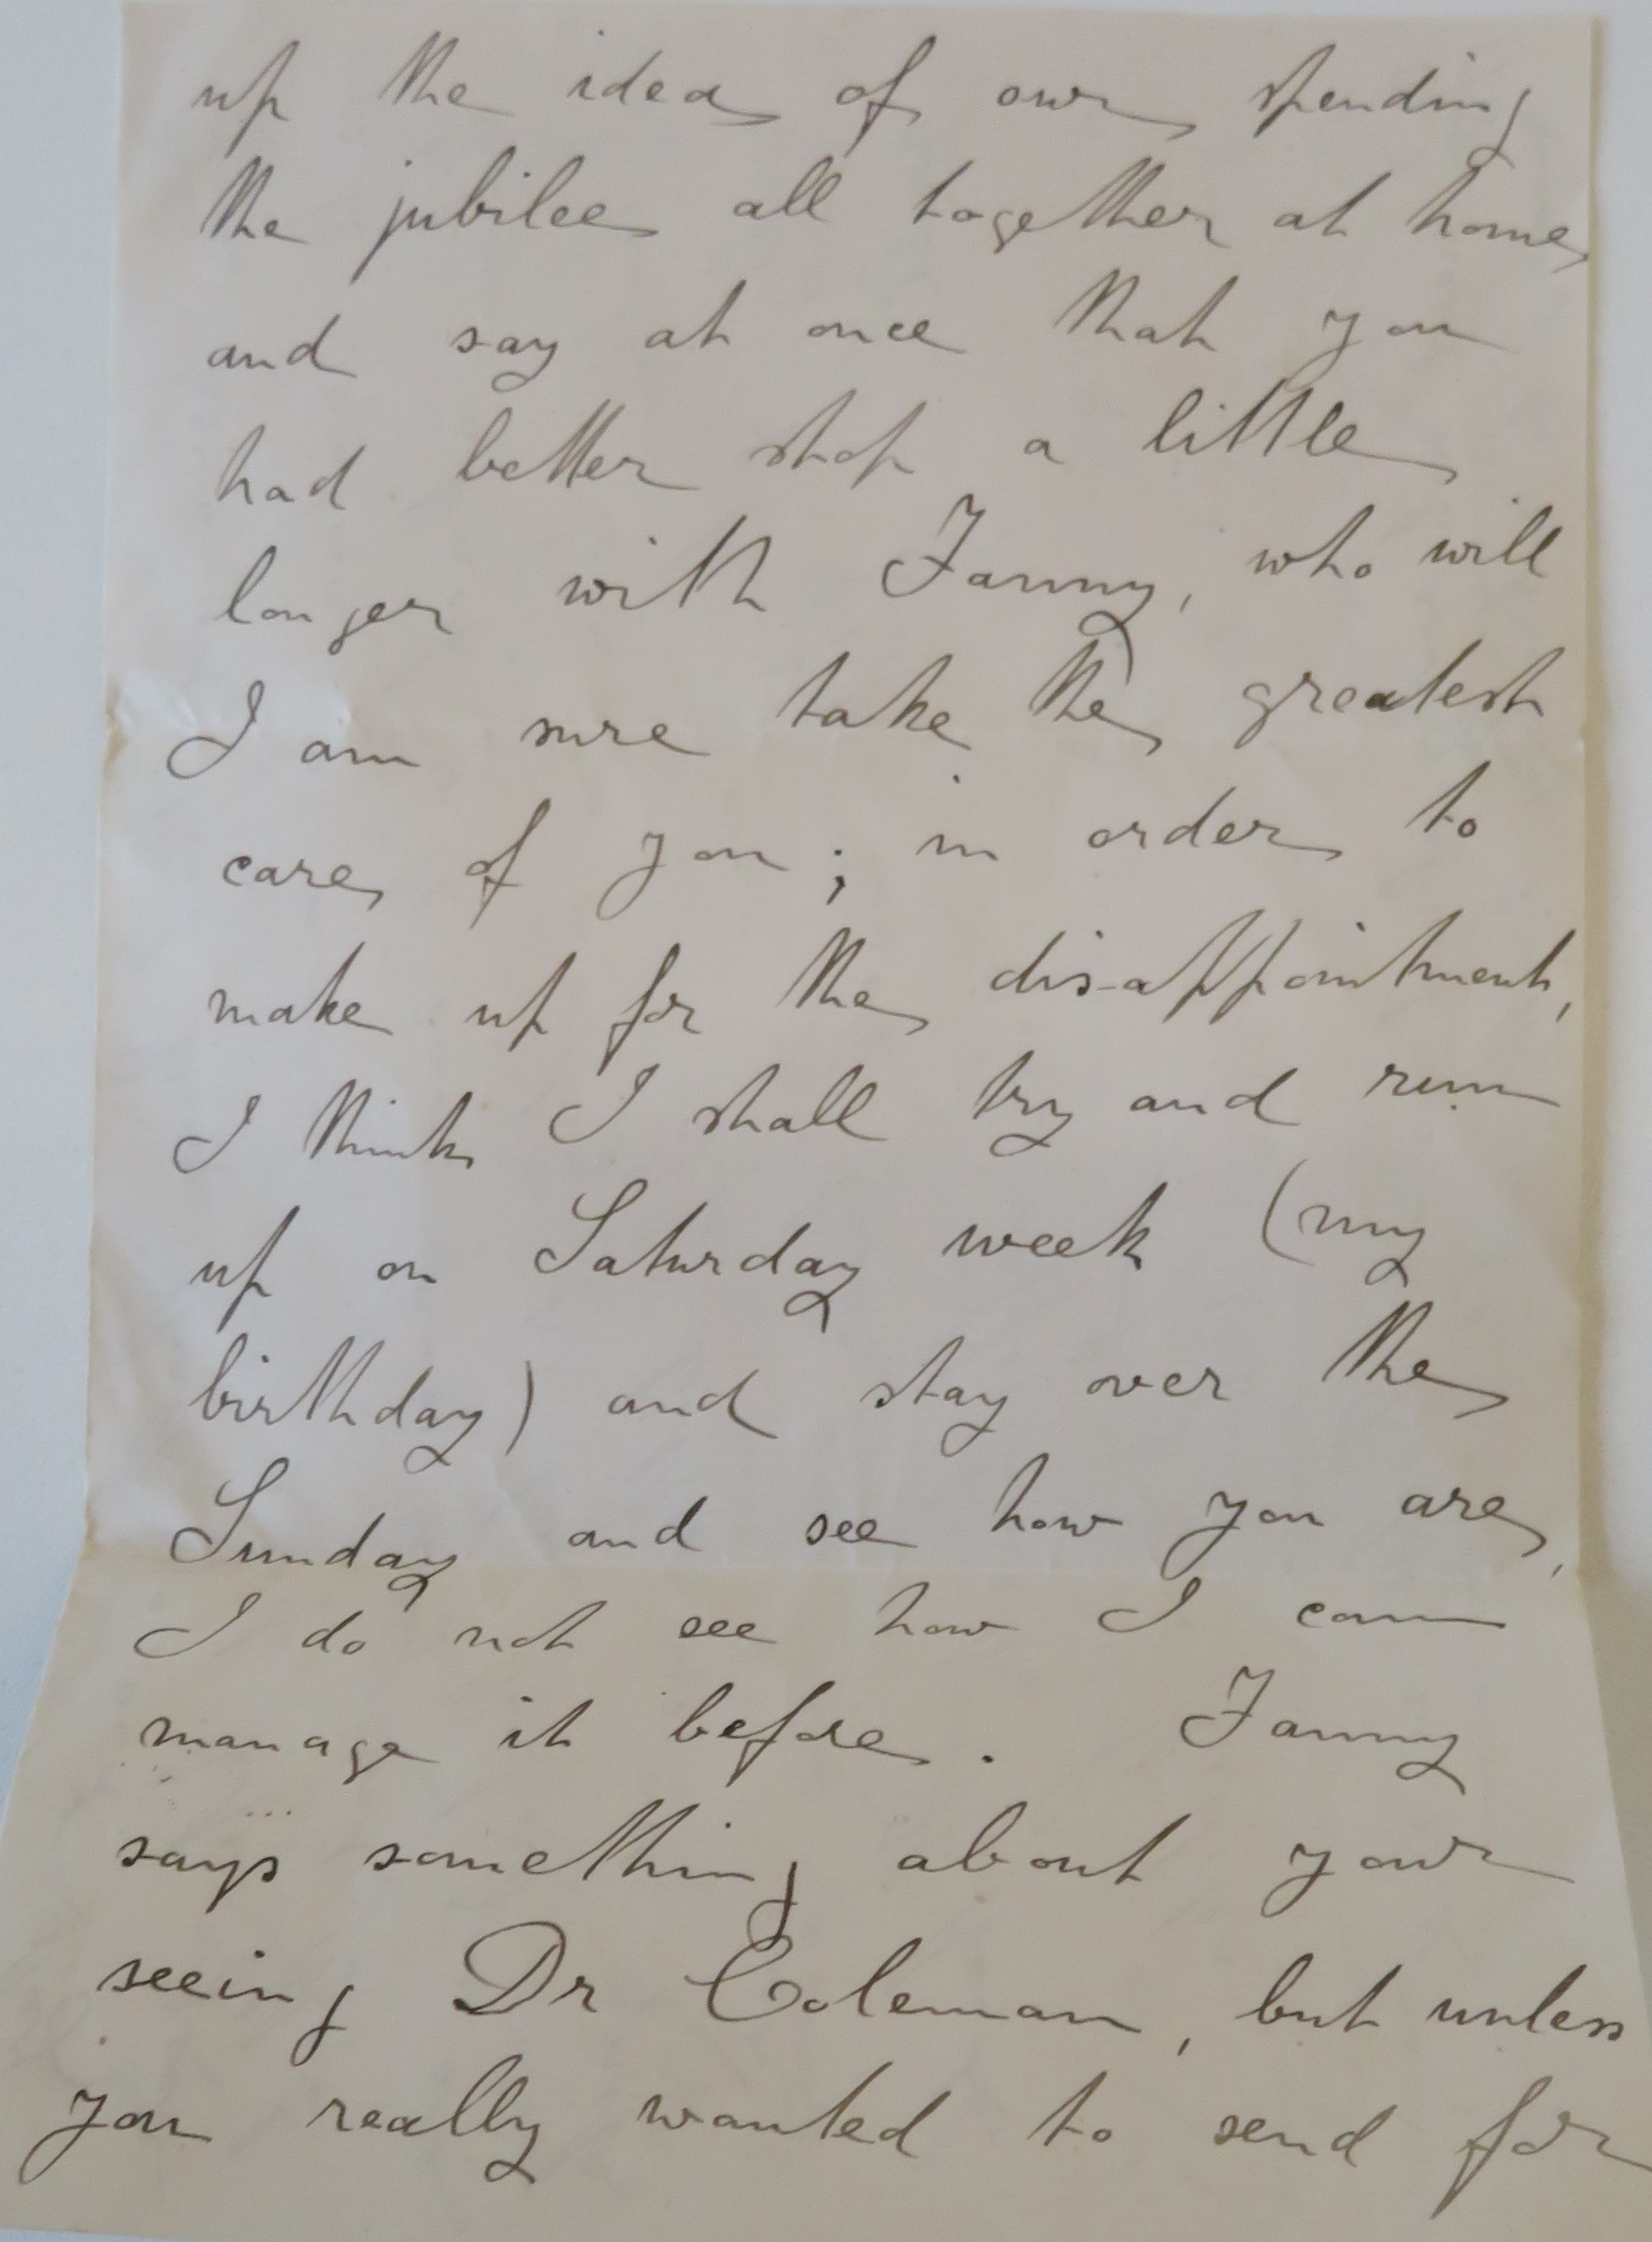 up the idea of our spending
the jubilee all together at home
and say at once that you
had better stop a little
longer with Fanny, who will
I am sure take the greatest
care of you; in order to
make up for the dis-appointment,
I think I shall try and run
up on Saturday week (my
birthday) and stay over the
Sunday and see how you are,
I do not see how I can
manage it before. Fanny
says something about your
seeing Dr Coleman, but unless
you really wanted to send for